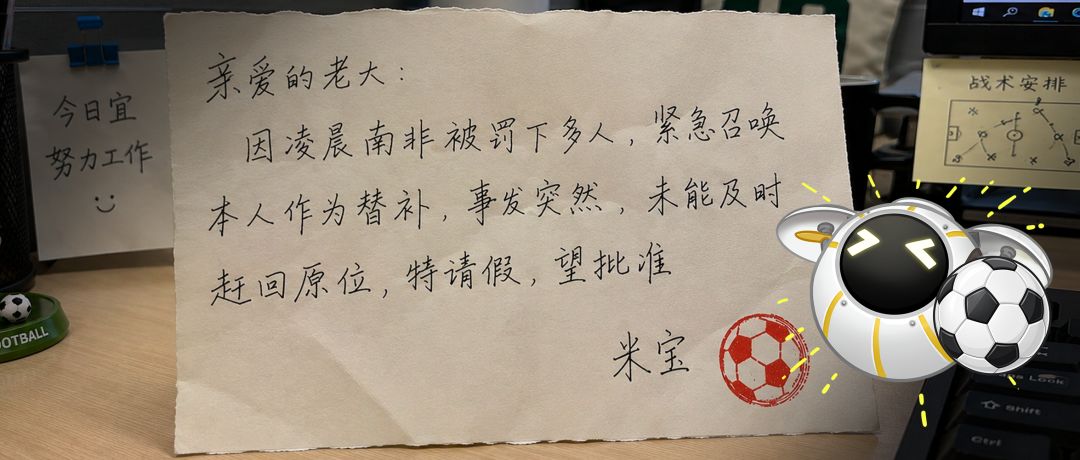 今日宜
努力工作
亲爱的老大：
因凌晨南非被罚下多人，紧急召唤
本人作为替补，事发突然，未能及时
赶回原位，特请假，望批准
米宝
战术安排
FOOTBALL
Shift
Ctrl